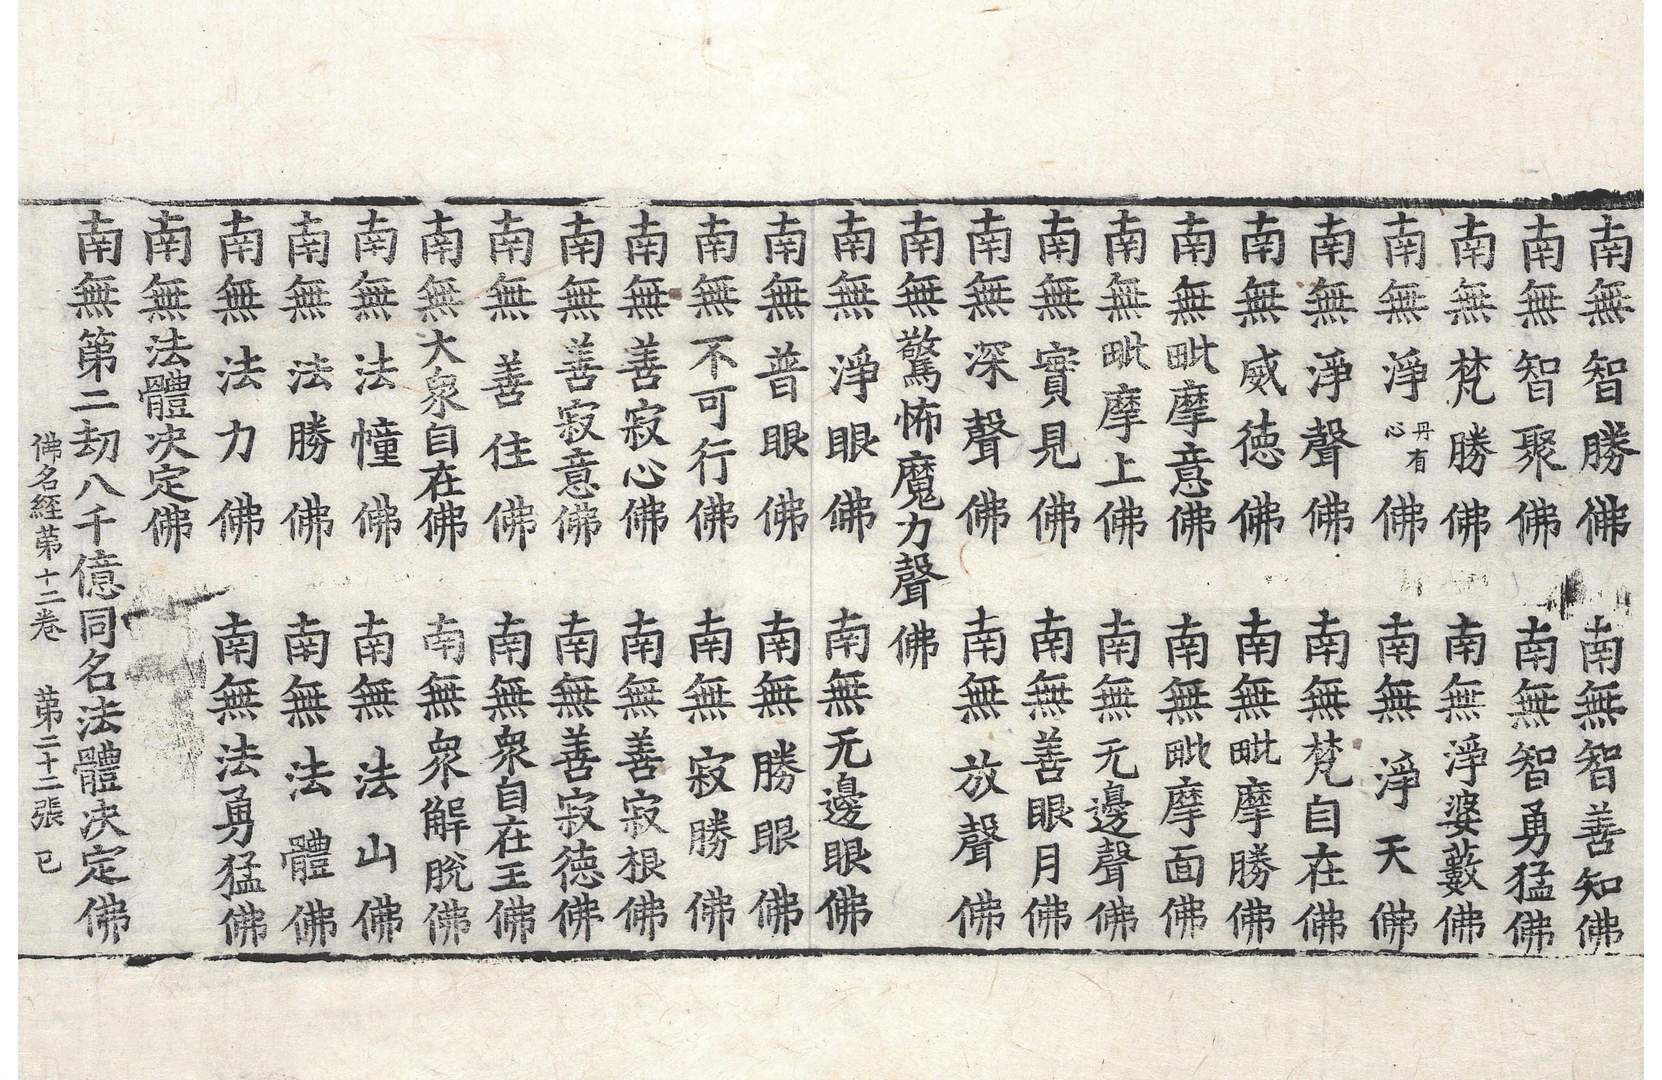 南無智勝佛　南無智善知佛
南無智聚佛　南無智勇猛佛
南無梵勝佛　南無淨婆藪佛
南無淨丹有心佛　南無淨天佛
南無淨聲佛　南無梵自在佛
南無威德佛　南無毗摩勝佛
南無毗摩意佛　南無毗摩面佛
南無毗摩上佛　南無无邊聲佛
南無實見佛　南無善眼月佛
南無深聲佛　南無放聲佛
南無驚怖魔力聲佛
南無淨眼佛　南無无邊眼佛
南無普眼佛　南無勝眼佛
南無不可行佛　南無寂勝佛
南無善寂心佛　南無善寂根佛
南無善寂意佛　南無善寂德佛
南無善住佛　南無衆自在王佛
南無大衆自在佛　南無衆解脫佛
南無法幢佛　南無法山佛
南無法勝佛　南無法體佛
南無法力佛　南無法勇猛佛
南無法體決定佛
南無第二劫八千億同名法體決定佛
佛名經第十二卷　第二十二張　已